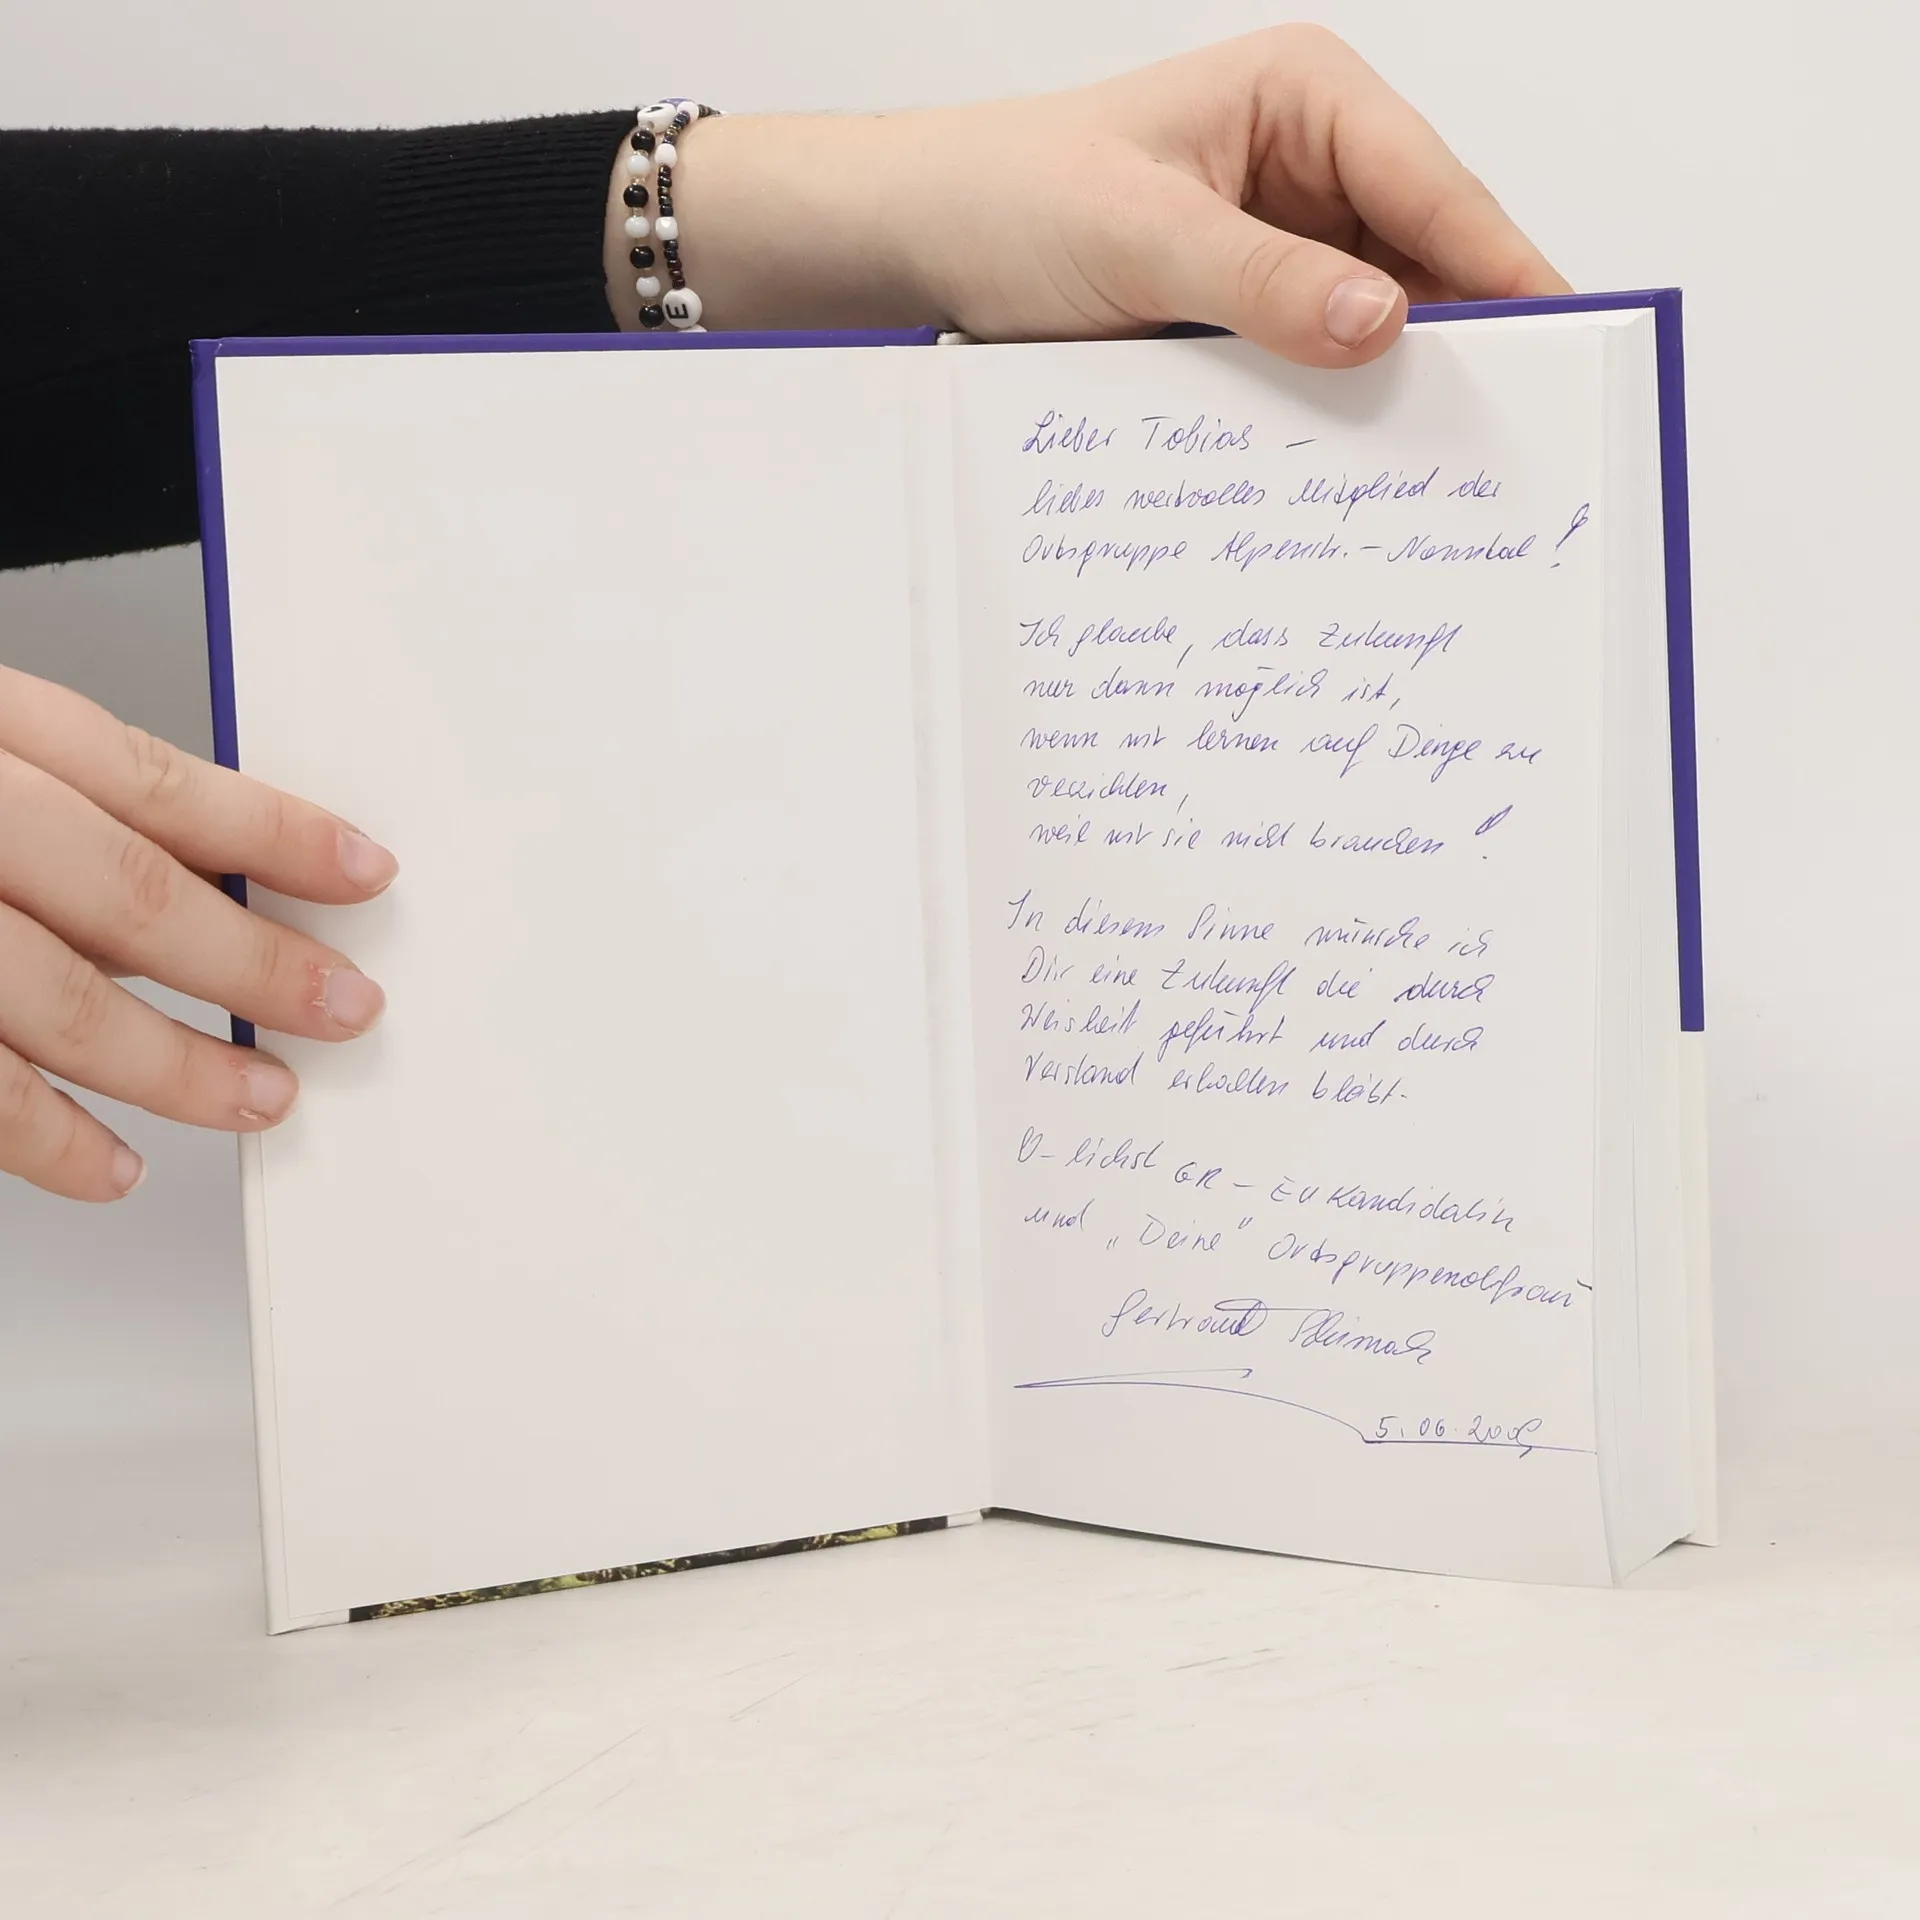 E
Lieber Tobias –
liebes wertvolles Mitglied der
Ortsgruppe Alpenstr. – Nonntal !
Ich glaube, dass Zukunft
nur dann möglich ist,
wenn wir lernen auf Dinge zu
verzichten,
weil wir sie nicht brauchen !
In diesem Sinne wünsche ich
Dir eine Zukunft die durch
Weisheit geführt und durch
Verstand erhalten bleibt.
lichst GR – EU Kandidatin
und „Deine" Ortsgruppenobfrau
Gertraud
5.06.2009